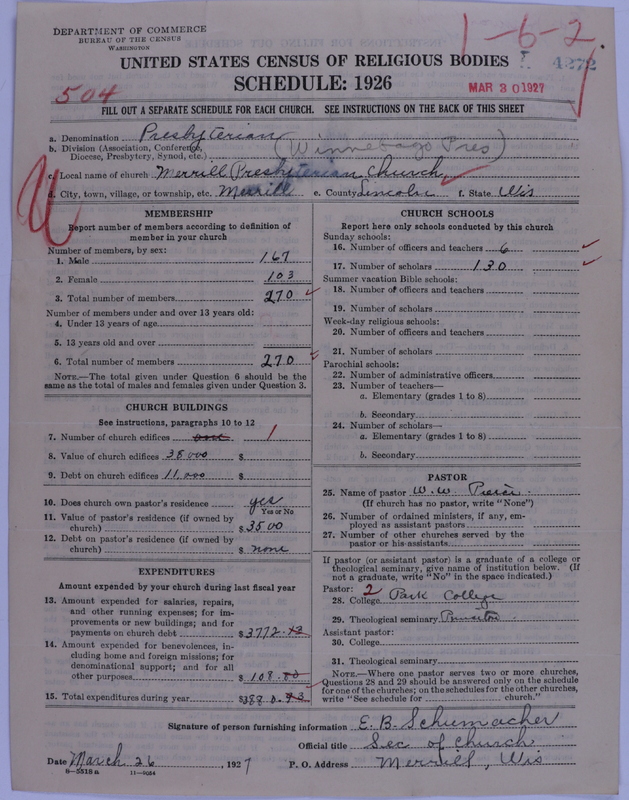 DEPARTMENT OF COMMERCE
BUREAU OF THE CENSUS
WASHINGTON
1-6-2
4272
UNITED STATES CENSUS OF RELIGIOUS BODIES
SCHEDULE: 1926
MAR 30 1927
504
FILL OUT A SEPARATE SCHEDULE FOR EACH CHURCH. SEE INSTRUCTIONS ON THE BACK OF THIS SHEET
a. Denomination Presbyterian
b. Division (Association, Conference, Diocese, Presbytery, Synod, etc.) (Winnebago Pres)
c. Local name of church Merrill Presbyterian Church
d. City, town, village, or township, etc. Merrill e. County Lincoln f. State Wis
MEMBERSHIP
Report number of members according to definition of
member in your church
Number of members, by sex:
1. Male 167
2. Female 103
3. Total number of members 270
Number of members under and over 13 years old:
4. Under 13 years of age
5. 13 years old and over
6. Total number of members 270
NOTE.—The total given under Question 6 should be the
same as the total of males and females given under Question 3.
CHURCH BUILDINGS
See instructions, paragraphs 10 to 12
7. Number of church edifices one 1
8. Value of church edifices 38000 $
9. Debt on church edifices 11,000 $
10. Does church own pastor's residence yes
Yes or No
11. Value of pastor's residence (if owned by
church) $3500
12. Debt on pastor's residence (if owned by
church) $ none
EXPENDITURES
Amount expended by your church during last fiscal year
13. Amount expended for salaries, repairs,
and other running expenses; for im-
provements or new buildings; and for
payments on church debt $3772.43
14. Amount expended for benevolences, in-
cluding home and foreign missions; for
denominational support; and for all
other purposes $108.00
15. Total expenditures during year $3880.43
CHURCH SCHOOLS
Report here only schools conducted by this church
Sunday schools:
16. Number of officers and teachers 6
17. Number of scholars 130
Summer vacation Bible schools:
18. Number of officers and teachers
19. Number of scholars
Week-day religious schools:
20. Number of officers and teachers
21. Number of scholars
Parochial schools:
22. Number of administrative officers
23. Number of teachers—
a. Elementary (grades 1 to 8)
b. Secondary
24. Number of scholars—
a. Elementary (grades 1 to 8)
b. Secondary
PASTOR
25. Name of pastor W. W.
(If church has no pastor, write "None")
26. Number of ordained ministers, if any, em-
ployed as assistant pastors
27. Number of other churches served by the
pastor or his assistants
If pastor (or assistant pastor) is a graduate of a college or
theological seminary, give name of institution below. (If
not a graduate, write "No" in the space indicated.)
Pastor: 2
28. College Park College
29. Theological seminary Princeton
Assistant pastor:
30. College
31. Theological seminary
NOTE.—Where one pastor serves two or more churches,
Questions 28 and 29 should be answered only on the schedule
for one of the churches; on the schedules for the other churches,
write "See schedule for church."
Signature of person furnishing information E. B. Schumacher
Official title Sec of Church
Date March 26, 1927 P. O. Address Merrill, Wis
8-5518a 11-8054